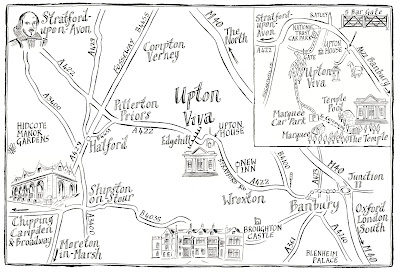 Stratford-
upon-Avon
A3400
A422
FOSSEWAY B4455
M40
The
North
Compton
Verney
Pillerton
Priors
A422
Upton
Viva
UPTON
HOUSE
Edgehill
HIDCOTE
MANOR
GARDENS
Halford
A429
NEW
INN
STRATFORD RD
A422
Shipston
on-Stour
A3400
B4035
Wroxton
BROUGHTON
CASTLE
Chipping
Campden
& Broadway
Moreton
in-Marsh
B4100
A423
M40
Junction
11
Banbury
Oxford
London
South
A361
B4100
M40
BLENHEIM
PALACE
Stratford-
upon-Avon
A422
RATLEY
5 Bar Gate
NATIONAL
TRUST CAR
PARK
UPTON
HOUSE
GATE
A422 Banbury
Upton
Viva
Temple
Pool
Marquee
Car Park
Marquee
The Temple